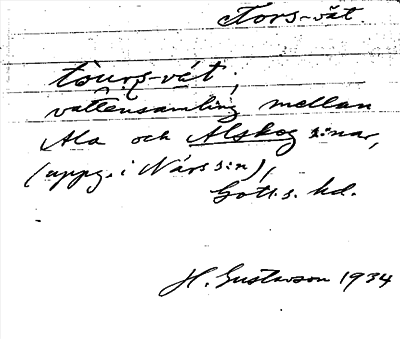 Tors-vät.
tòurs-vét;
vattensamling mellan
Ala och Alskog s:nar,
(uppg. i När s:n),
Gotl. s. hd.
H. Gustavson 1934